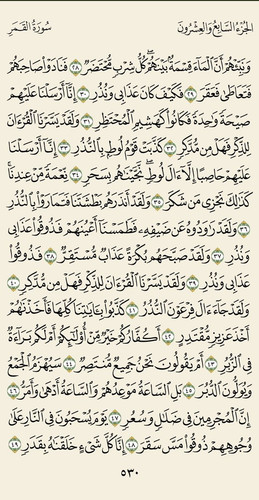 سُورَةُ القَمَرِ الجُزْءُ السَّابِعُ وَالعِشْرُونَ
وَنَبِّئْهُمْ أَنَّ ٱلْمَآءَ قِسْمَةٌۢ بَيْنَهُمْ ۖ كُلُّ شِرْبٍ مُّحْتَضَرٌ ٢٨ فَنَادَوْا۟ صَاحِبَهُمْ
فَتَعَاطَىٰ فَعَقَرَ ٢٩ فَكَيْفَ كَانَ عَذَابِى وَنُذُرِ ٣٠ إِنَّآ أَرْسَلْنَا عَلَيْهِمْ
صَيْحَةً وَٰحِدَةً فَكَانُوا۟ كَهَشِيمِ ٱلْمُحْتَظِرِ ٣١ وَلَقَدْ يَسَّرْنَا ٱلْقُرْءَانَ
لِلذِّكْرِ فَهَلْ مِن مُّدَّكِرٍ ٣٢ كَذَّبَتْ قَوْمُ لُوطٍۭ بِٱلنُّذُرِ ٣٣ إِنَّآ أَرْسَلْنَا
عَلَيْهِمْ حَاصِبًا إِلَّآ ءَالَ لُوطٍ ۖ نَّجَّيْنَٰهُم بِسَحَرٍ ٣٤ نِّعْمَةً مِّنْ عِندِنَا ۚ
كَذَٰلِكَ نَجْزِى مَن شَكَرَ ٣٥ وَلَقَدْ أَنذَرَهُم بَطْشَتَنَا فَتَمَارَوْا۟ بِٱلنُّذُرِ
٣٦ وَلَقَدْ رَٰوَدُوهُ عَن ضَيْفِهِۦ فَطَمَسْنَآ أَعْيُنَهُمْ فَذُوقُوا۟ عَذَابِى
وَنُذُرِ ٣٧ وَلَقَدْ صَبَّحَهُم بُكْرَةً عَذَابٌ مُّسْتَقِرٌّ ٣٨ فَذُوقُوا۟
عَذَابِى وَنُذُرِ ٣٩ وَلَقَدْ يَسَّرْنَا ٱلْقُرْءَانَ لِلذِّكْرِ فَهَلْ مِن مُّدَّكِرٍ ٤٠
وَلَقَدْ جَآءَ ءَالَ فِرْعَوْنَ ٱلنُّذُرُ ٤١ كَذَّبُوا۟ بِـَٔايَٰتِنَا كُلِّهَا فَأَخَذْنَٰهُمْ
أَخْذَ عَزِيزٍ مُّقْتَدِرٍ ٤٢ أَكُفَّارُكُمْ خَيْرٌ مِّنْ أُو۟لَٰٓئِكُمْ أَمْ لَكُم بَرَآءَةٌ
فِى ٱلزُّبُرِ ٤٣ أَمْ يَقُولُونَ نَحْنُ جَمِيعٌ مُّنتَصِرٌ ٤٤ سَيُهْزَمُ ٱلْجَمْعُ
وَيُوَلُّونَ ٱلدُّبُرَ ٤٥ بَلِ ٱلسَّاعَةُ مَوْعِدُهُمْ وَٱلسَّاعَةُ أَدْهَىٰ وَأَمَرُّ ٤٦
إِنَّ ٱلْمُجْرِمِينَ فِى ضَلَٰلٍ وَسُعُرٍ ٤٧ يَوْمَ يُسْحَبُونَ فِى ٱلنَّارِ عَلَىٰ
وُجُوهِهِمْ ذُوقُوا۟ مَسَّ سَقَرَ ٤٨ إِنَّا كُلَّ شَىْءٍ خَلَقْنَٰهُ بِقَدَرٍ ٤٩
٥٣٠